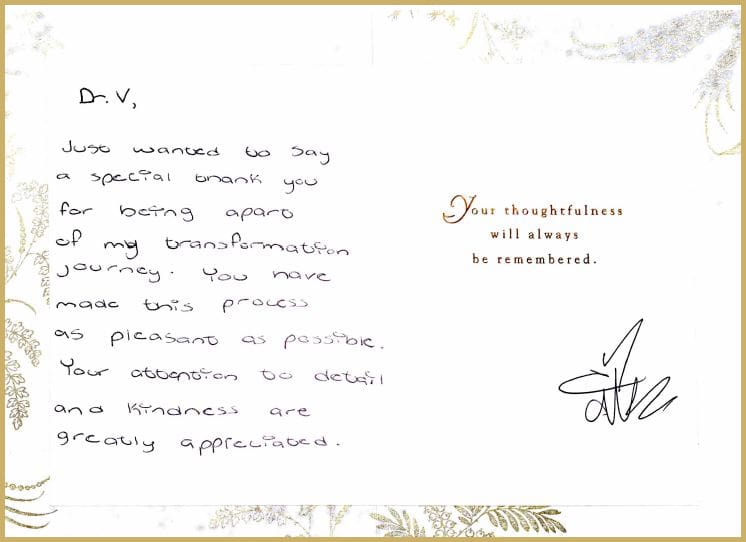 Dr. V,
Just wanted to say
a special thank you
for being apart
of my transformation
journey. You have
made this process
as pleasant as possible.
Your attention to detail
and kindness are
greatly appreciated.
Your thoughtfulness
will always
be remembered.